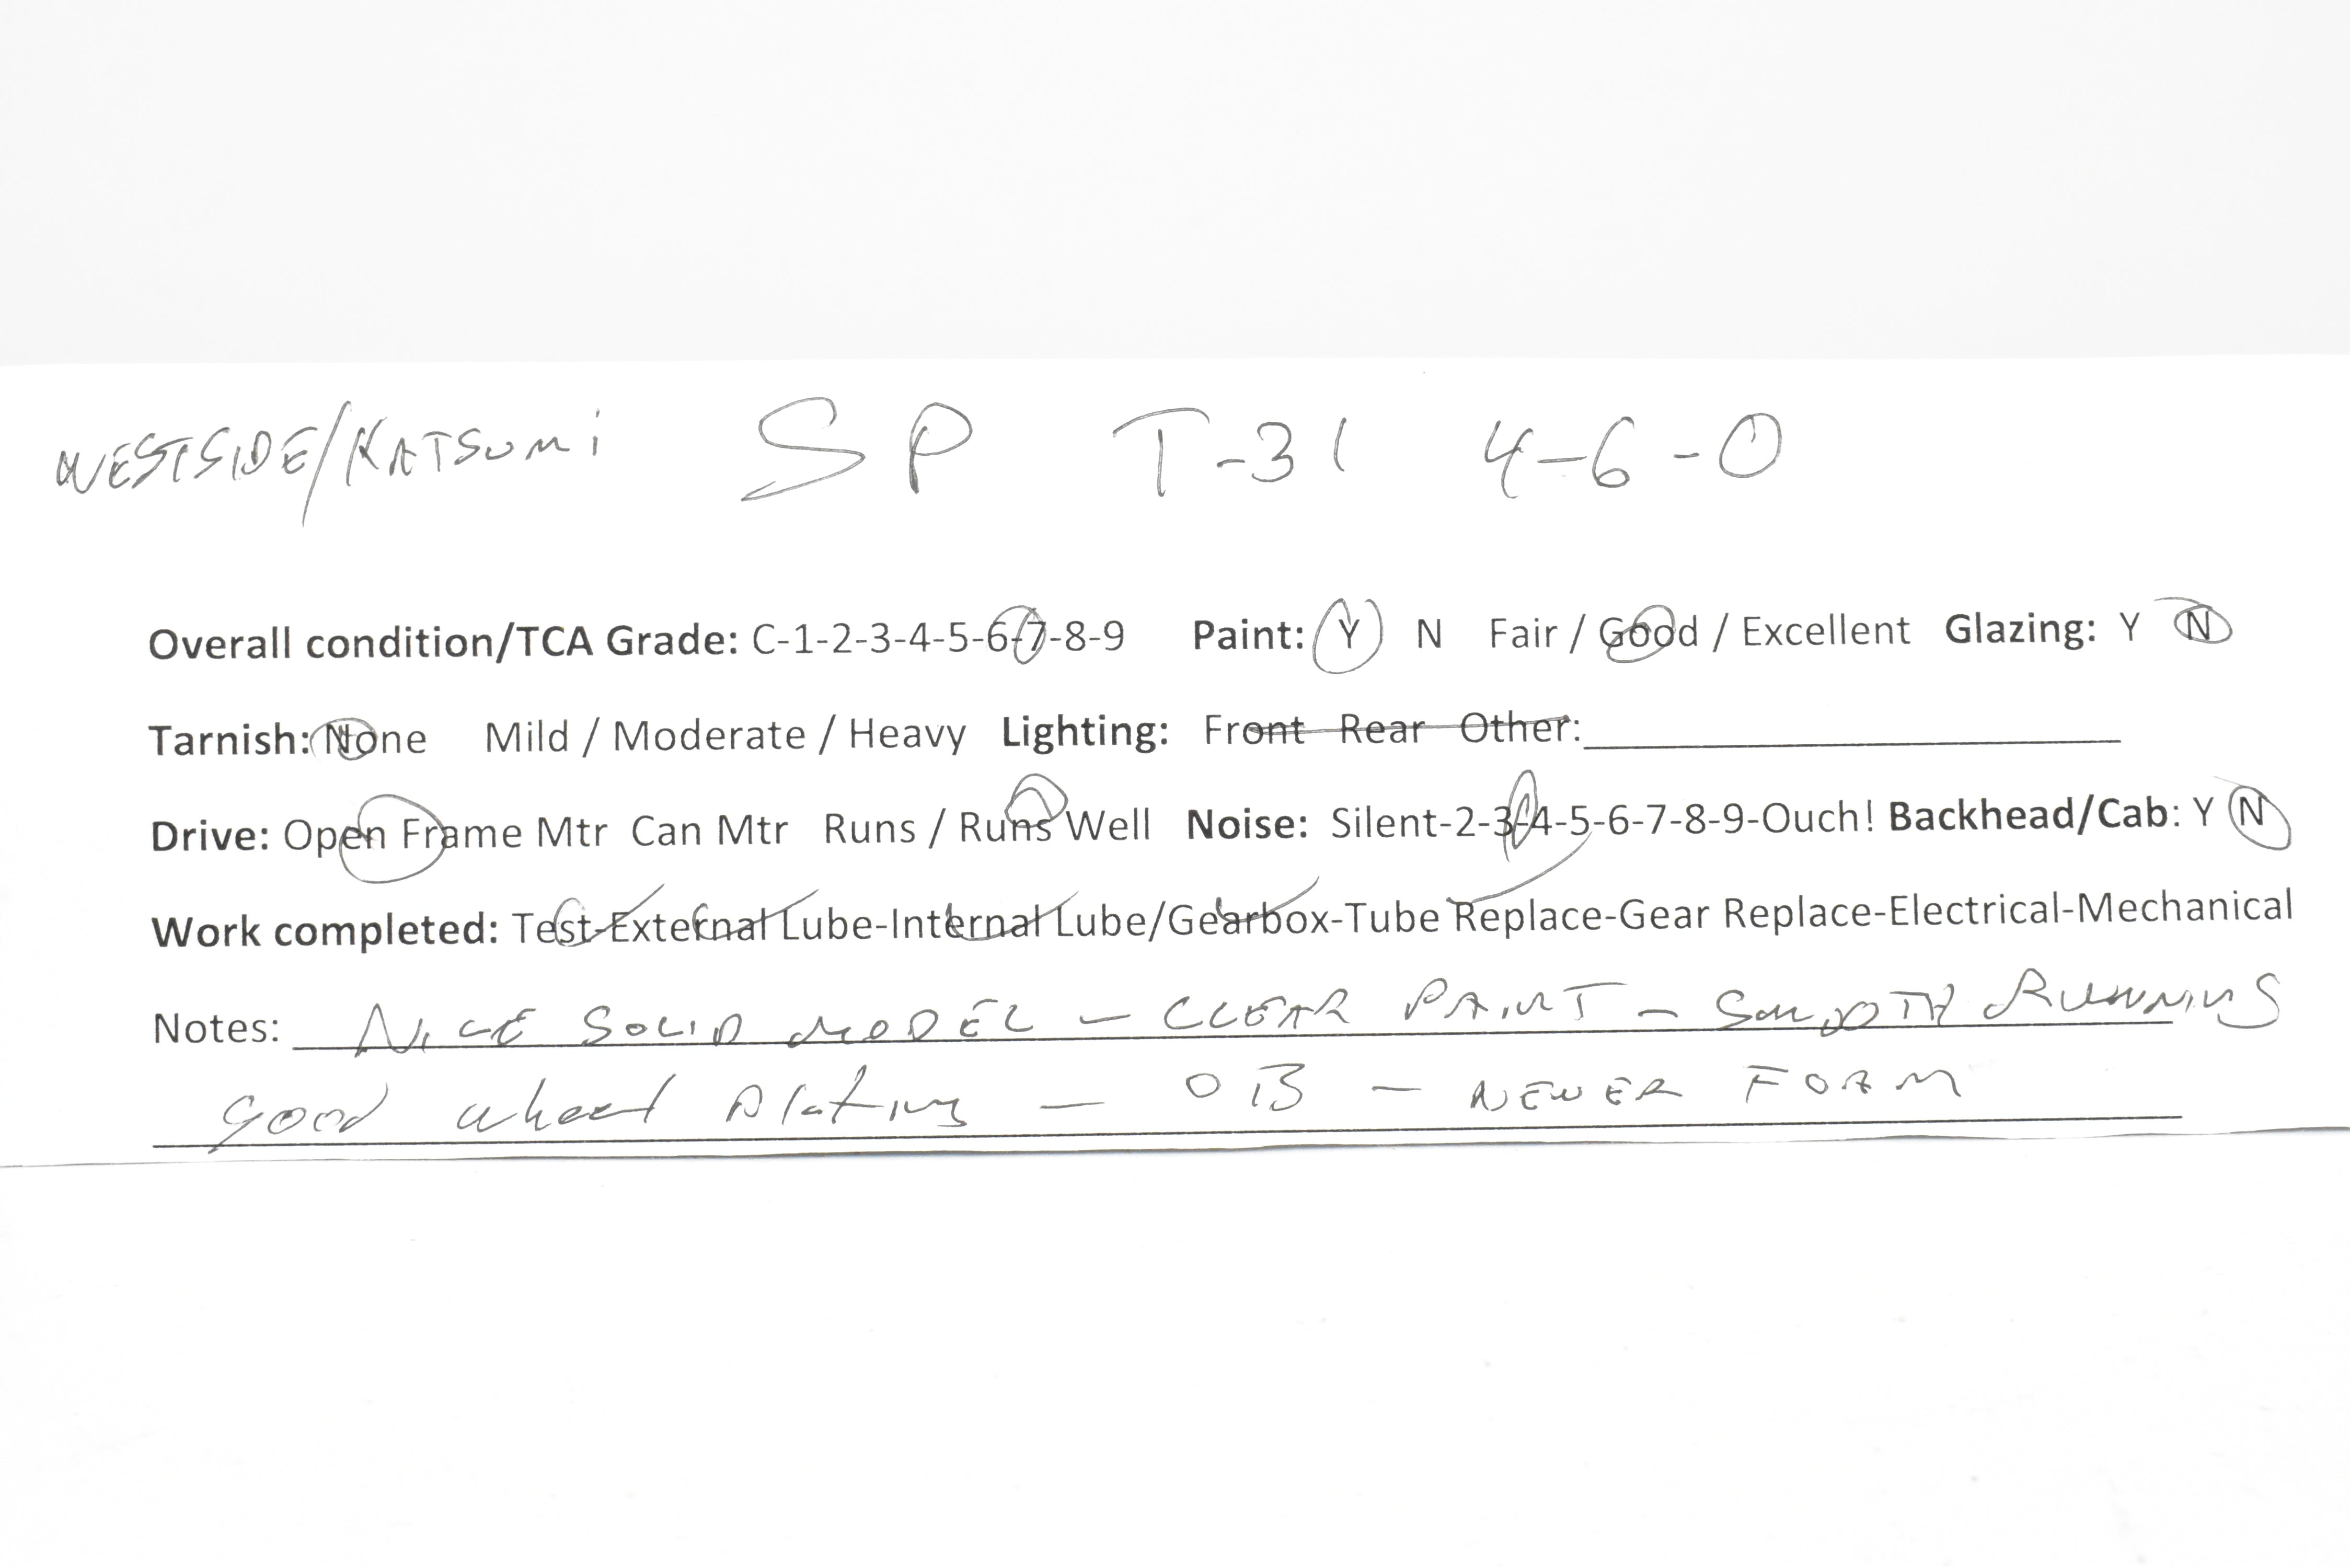 WESTSIDE/KATSUMi SP T-31 4-6-0
Overall condition/TCA Grade: C-1-2-3-4-5-6-7-8-9 Paint: Y N Fair / Good / Excellent Glazing: Y N
Tarnish: None Mild / Moderate / Heavy Lighting: Front Rear Other:
Drive: Open Frame Mtr Can Mtr Runs / Runs Well Noise: Silent-2-3-4-5-6-7-8-9-Ouch! Backhead/Cab: Y N
Work completed: Test-External Lube-Internal Lube/Gearbox-Tube Replace-Gear Replace-Electrical-Mechanical
Notes: NICE SOLID MODEL - CLEAR PAINT - SMOOTH RUNNING
good wheel plating - OB - NEWER FOAM